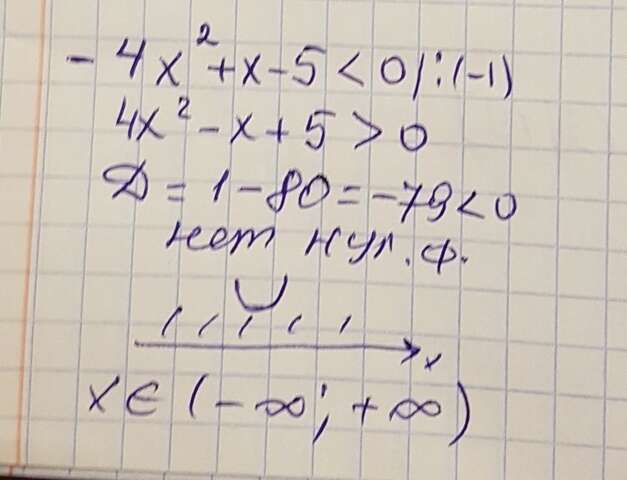 - 4x² + x - 5 < 0 | : (-1)
4x² - x + 5 > 0
D = 1 - 80 = -79 < 0
нет нул. ф.
x
x ∈ (-∞; +∞)